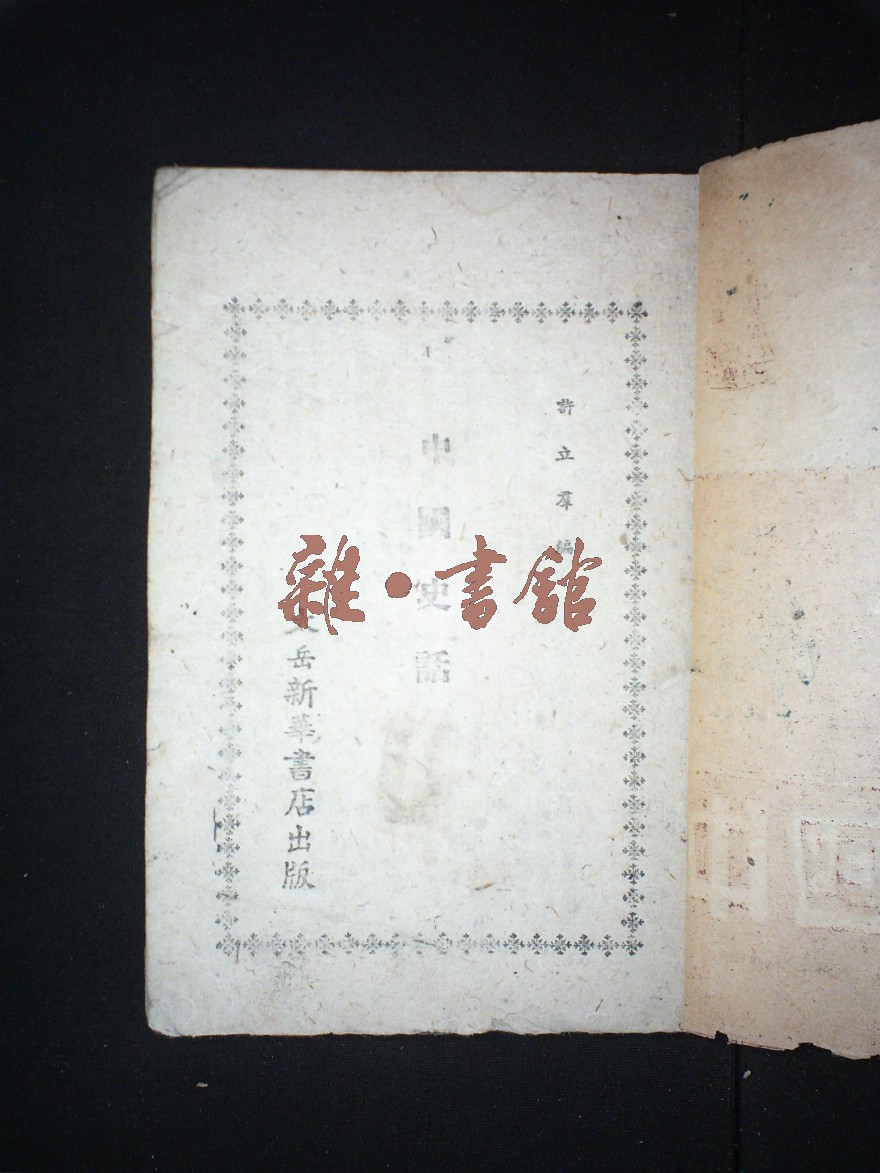 許立羣編
中國史話
太岳新華書店出版
雜·書館